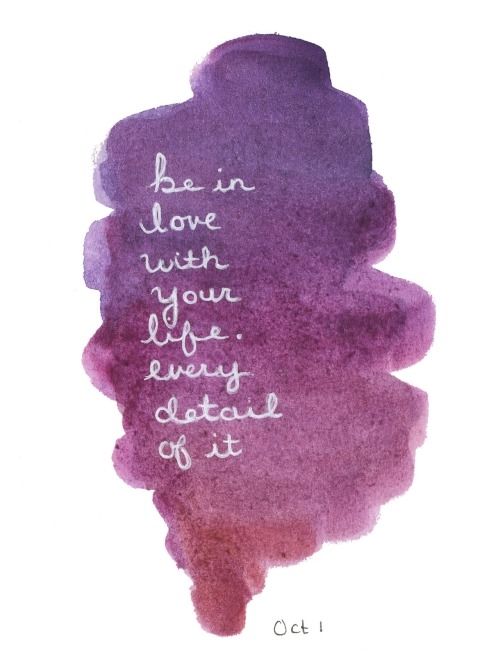 be in
love
with
your
life.
every
detail
of it
Oct 1